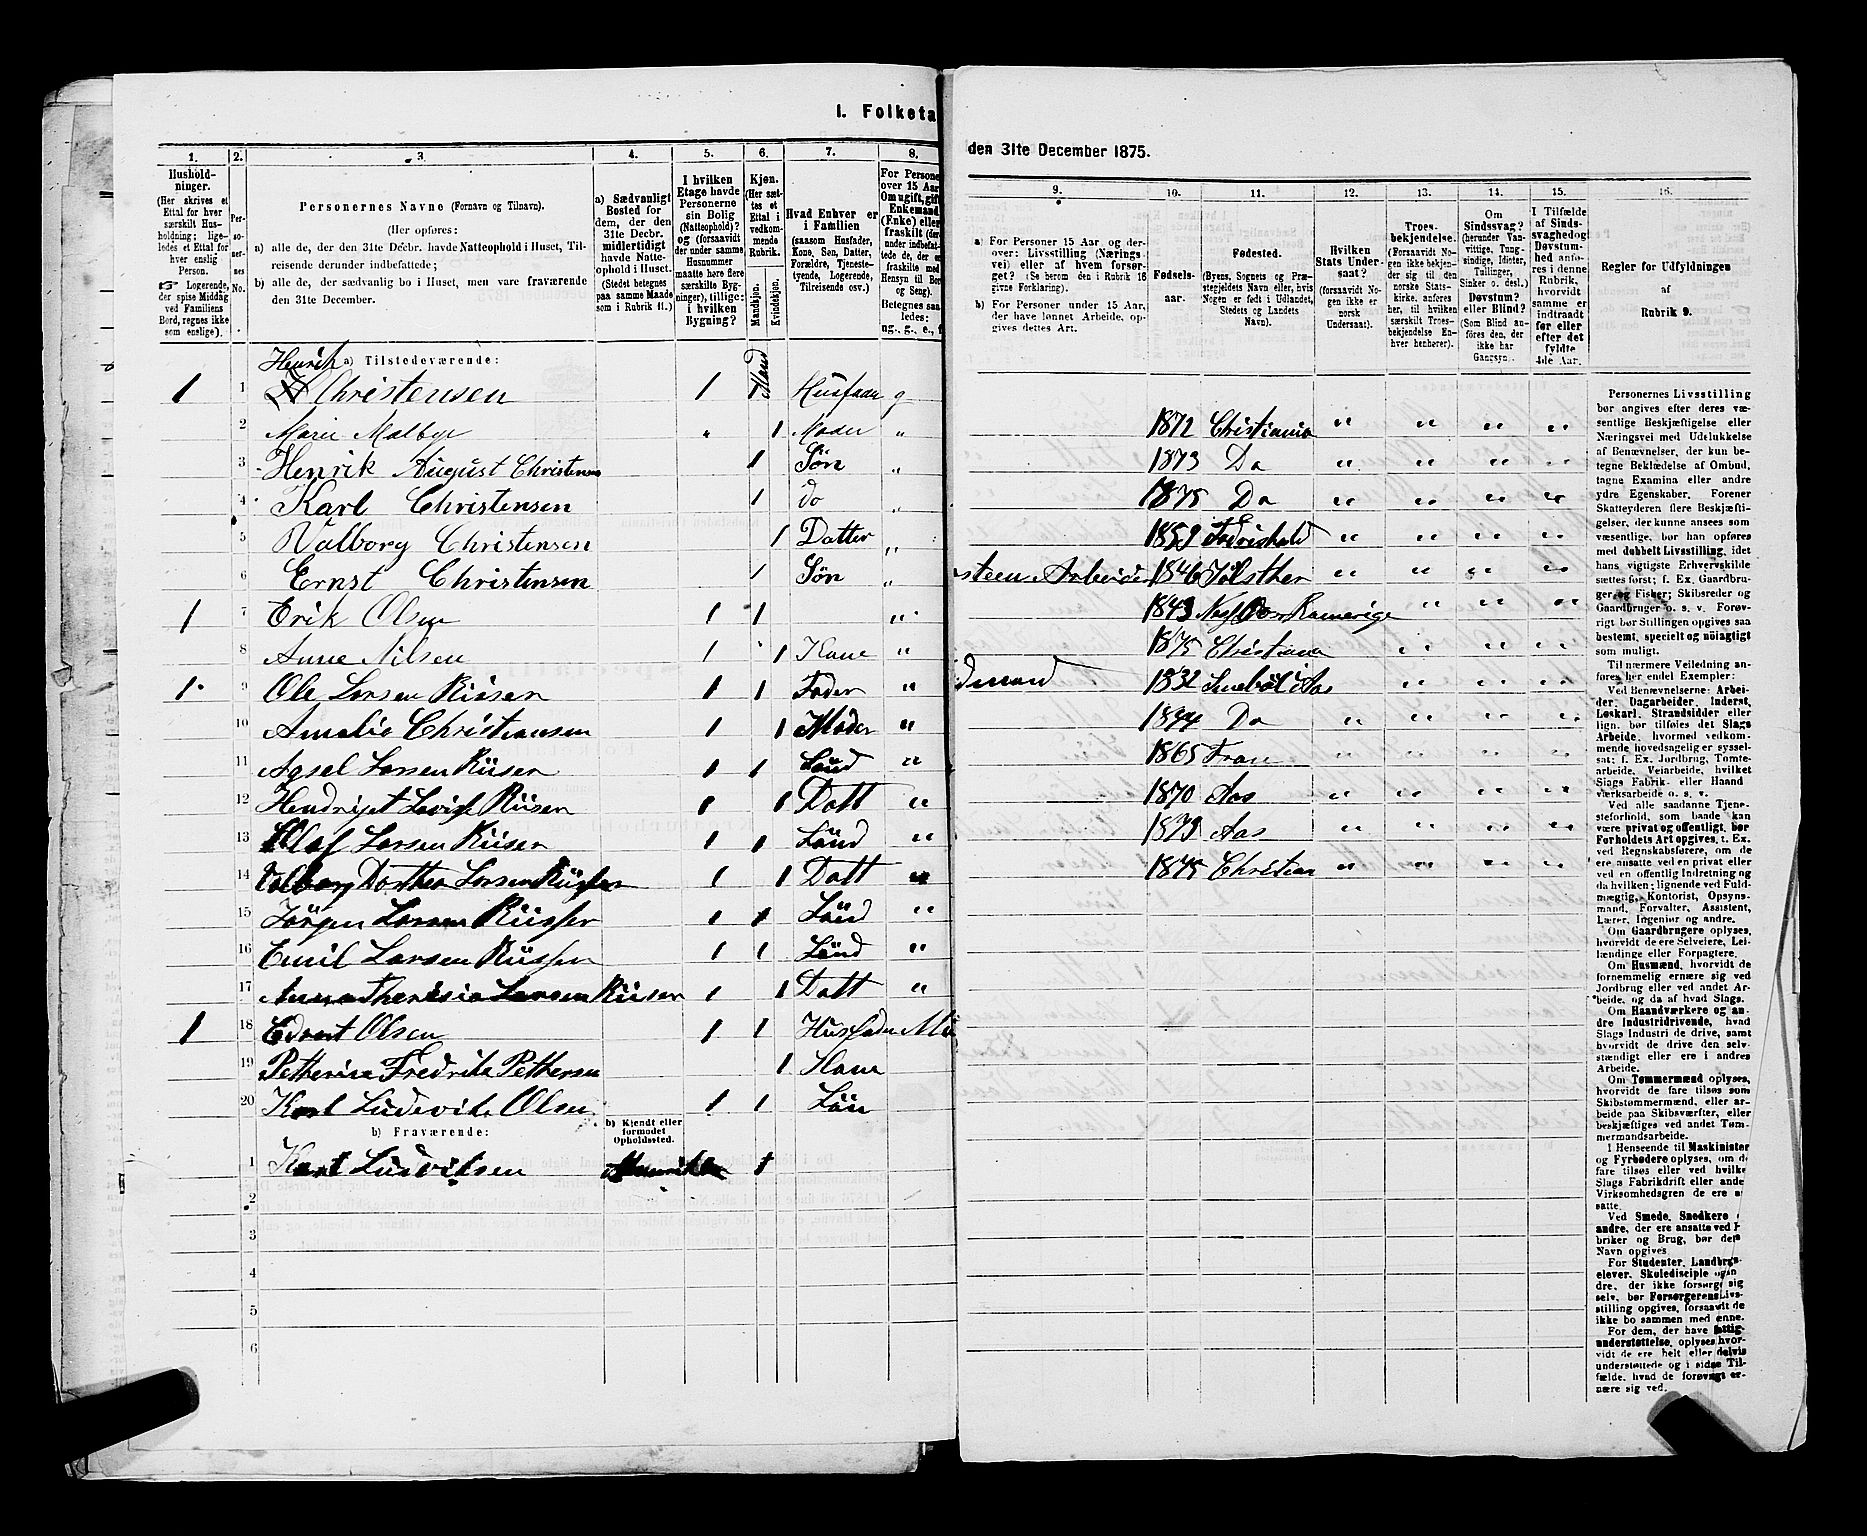 I. Folketa
den 31te December 1875.
1. 2. 3. 4. 5. 6. 7. 8.
Hushold-
ninger.
(Her skrives et
Ettal for hver
særskilt Hus-
holdning; lige-
ledes et Ettal for
hver enslig
Person.
Logerende,
der spise Middag
ved Familiens
Bord, regnes ikke
som enslige).
Per-
so-
ner-
nes
No.
Personernes Navne (Fornavn og Tilnavn).
(Her opføres:
a) alle de, der den 31te Decbr. havde Natteophold i Huset, Til-
reisende derunder indbefattede;
b) alle de, der sædvanlig bo i Huset, men vare fraværende
den 31te December.
a) Sædvanligt
Bosted for
dem, der den
31te Decbr.
midlertidigt
havde Natte-
ophold i Huset.
(Stedet betegnes
paa samme Maade
som i Rubrik 11.)
I hvilken
Etage havde
Personerne
sin Bolig
(Natteophold)?
og (forsaavidt
der under samme
Husnummer
maatte høre flere
særskilte Byg-
ninger), tillige:
i hvilken
Bygning?
Kjøn.
(Her sæt-
tes et
Ettal i
vedkom-
mende
Rubrik.
Mandskjøn.
Kvindekjøn.
Hvad Enhver er
i Familien
(saasom Husfader,
Kone, Søn, Datter,
Forældre, Tjeneste-
tyende, Logerende,
Tilreisende osv.)
For Persone
over 15 Aar
Om ugift, gift
Enkemand
(Enke) eller
fraskilt (der
under indbefat-
tede de, der er
fraskilte med
Hensyn til Bor
og Seng).
Betegnes saa
ledes:
ng., g., e., f
a) Tilstedeværende:
Henrik
1 1 Christensen 1 1 Mand Husfader g
2 Marie Malbye " 1 Moder "
3 Henrik August Christensen 1 Søn "
4 Karl Christensen 1 do "
5 Valborg Christensen 1 Datter "
6 Ernst Christensen 1 Søn "
1 7 Erik Olsen 1 1 "
8 Anne Nilsen 1 1 Kone "
1 9 Ole Larsen Riiser 1 1 Fader "
10 Amalie Christiansen 1 1 Moder "
11 Agsel Larsen Riiser 1 1 Sönd "
12 Hendriget Riiser 1 1 Datt "
13 Olaf Larsen Riiser 1 1 Sönd "
14 Valborg Dorthea Larsen Riisser 1 1 Datt "
15 Jörgen Larsen Riisser 1 1 Sönd "
16 Emil Larsen Riisser 1 1 Sönd "
17 Anna Theresia Larsen Riiser 1 1 Datt "
1 18 Edvart Olsen 1 1 Husfader
19 Petherine Fredrike Pettersen 1 Kone
20 Karl Ludevik Olsen 1 1 Sön
b) Fraværende:
b) Kjendt eller
formodet
Opholdssted.
1 Karl Ludvitsen 1
2
3
4
5
6
9. 10. 11. 12. 13. 14. 15. 16.
a) For Personer 15 Aar og der-
over: Livsstilling (Nærings-
vei) eller af hvem forsør-
get? (Se herom den i Rubrik 16
givne Forklaring).
b) For Personer under 15 Aar,
der have lønnet Arbeide, op-
gives dettes Art.
Fødsels-
aar.
Fødested.
(Byens, Sognets og Præ-
stegjeldets Navn eller, hvis
Nogen er født i Udlandet,
Stedets og Landets
Navn).
Hvilken
Stats Under-
saat?
(forsaavidt No-
gen ikke er
norsk
Undersaat).
Troes-
bekjendelse.
(Forsaavidt No-
gen ikke bekjen-
der sig til den
norske Stats-
kirke, anføres
her, til hvilken
særskilt Troes-
bekjendelse En-
hver henhører).
Om
Sindssvag?
(herunder Van-
vittige, Tung-
sindige, Idioter,
Tullinger,
Sinker o. desl.)
Døvstum?
eller Blind?
(Som Blind an-
føres den, der
ikke har
Gangsyn.
I Tilfælde
af Sinds-
svaghed og
Døvstum-
hed anfø-
res i denne
Rubrik,
hvorvidt
samme er
indtraadt
før eller
efter det
fyldte
4de Aar.
Regler for Udfyldningen
af
Rubrik 9.
1872 Christiania " " " "
1873 Do " " " "
1875 Do " " " "
1859 Fredrikshald " " " "
Arbeider 1846 Jölsther " " " "
1843 Romerige " " "
1875 Christiania " " "
1832 Aas " " "
1844 Do " " " "
1865 Fron " " "
1870 Aas " " " "
1873 Aas " " " "
1845 Christian " " " "
Personernes Livsstilling
bør angives efter deres væ-
sentlige Beskjæftigelse eller
Næringsvei med Udelukkelse
af Benævnelser, der kun be-
tegne Beklædelse af Ombud,
tagne Examina eller andre
ydre Egenskaber. Forener
Skatteyderen flere Beskjæfti-
gelser, der kunne ansees som
væsentlige, bør han opføres
med dobbelt Livsstilling, idet
hans vigtigste Erhvervskilde
sættes først; f. Ex. Gaardbru-
ger og Fisher; Skibsreder og
Gaardbruger o. s. v. Forøv-
rigt bør Stillingen opgives saa
bestemt, specielt og nöiagtigt
som muligt.
Til nærmere Veiledning an-
føres her endel Exempler:
Ved Benævnelserne: Arbei-
der, Dagarbeider, Inderst,
Løskarl, Strandsidder eller
lign. bør tilføies det Slags
Arbeide, hvormed vedkom-
mende hovedsagelig er syssel-
sat; f. Ex. Jordbrug, Tomte-
arbeide, Veiarbeide, hvilket
Slags Fabrik- eller Haand
værksarbeide o. s. v.
Ved alle saadanne Tjene-
steforhold, som baade kan
være privat og offentligt, bør
Forholdets Art opgives, t. Ex.
ved Regnskabsførere, om de
ere ansatte ved en privat eller
ved en offentlig Indretning og
da hvilken; lignende ved Fuld-
mægtig, Kontorist, Opsyns-
mand, Forvalter, Assistent,
Lærer, Ingeniør og andre.
Om Gaardbrugere oplyses,
hvorvidt de ere Selveiere, Lei-
lændinge eller Forpagtere.
Om Husmænd, hvorvidt de
fornemmelig ernære sig ved
Jordbrug eller ved andet Ar-
beide, og da af hvad Slags.
Om Haandværkere og an-
dre Industridrivende, hvad
Slags Industri de drive, samt
hvorvidt de drive den selv-
stændigt eller ere i andres
Arbeide.
Om Tømmermænd oplyses,
hvorvidt de fare tilsøs som
Skibstømmermænd, eller ar-
beide paa Skibsværfter, eller
beskjæftiges ved andet Tøm-
mermandsarbeide.
I Henseende til Maskinister
og Fyrbødere oplyses, om de
fare tilsøs eller ved hvilke
Slags Fabrikdrift eller ande
Virksomhedsgren de ere a
satte.
Ved Smede, Snedkere
andre, der ere ansatte ved
briker og Brug, bør det
Navn opgives
For Studenter, Landbrgs-
elever, Skoledisciple og an
dre, der ikke forsørge sig
selv, bør Forsørgerens Livs-
stilling opgives, forsaavidt de
ikke bo sammen med enne.
For dem, der have fattig-
understøttelse, oplyses hvor-
vidt de ere helt eller delvis
understøttede og i sidste Til-
fælde, hvad de forøvrigt er-
nære sig ved.